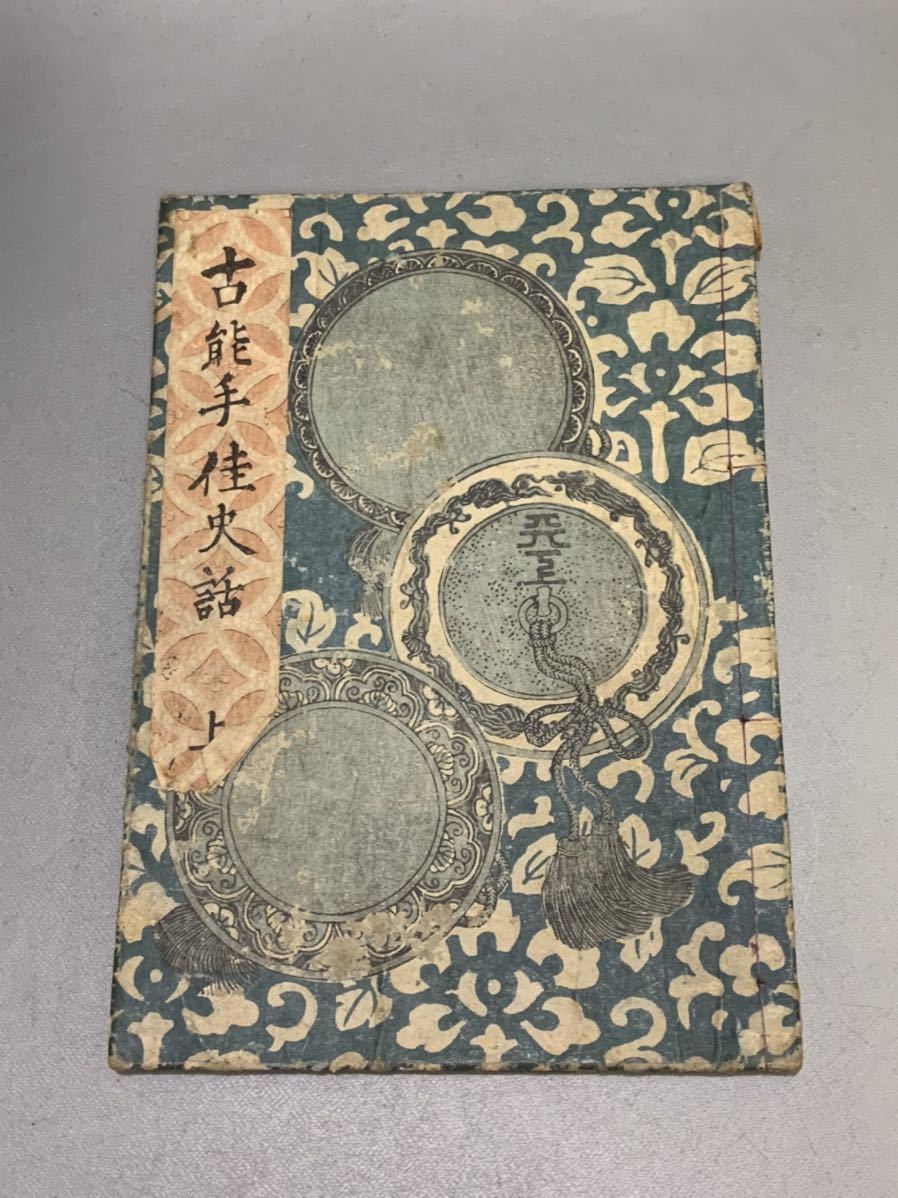 古能手佳史話 上
天下一